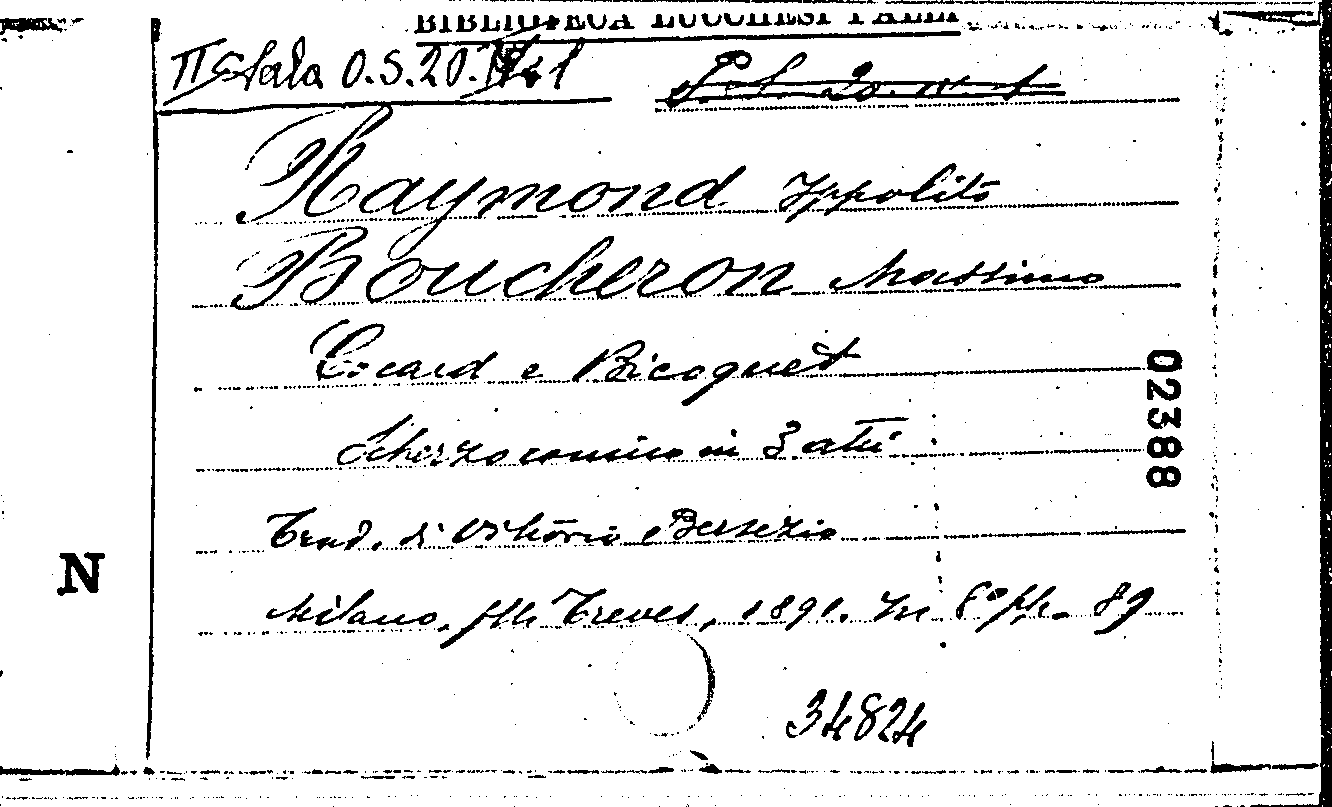 BIBLIOTECA LUCCHESI PALLI
IIª Sala O.S.20.
Raymond Ippolito
Boucheron Massimo
Cocard e Bicoquet
Scherzo comico in 3 atti
Trad. di Vittorio Bersezio
Milano, f.lli Treves, 1891. In 8º pp. 89
34824
02388
N